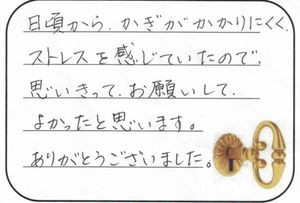 日頃から、かぎがかかりにくく、
ストレスを感じていたので、
思いきって、お願いして、
よかったと思います。
ありがとうございました。